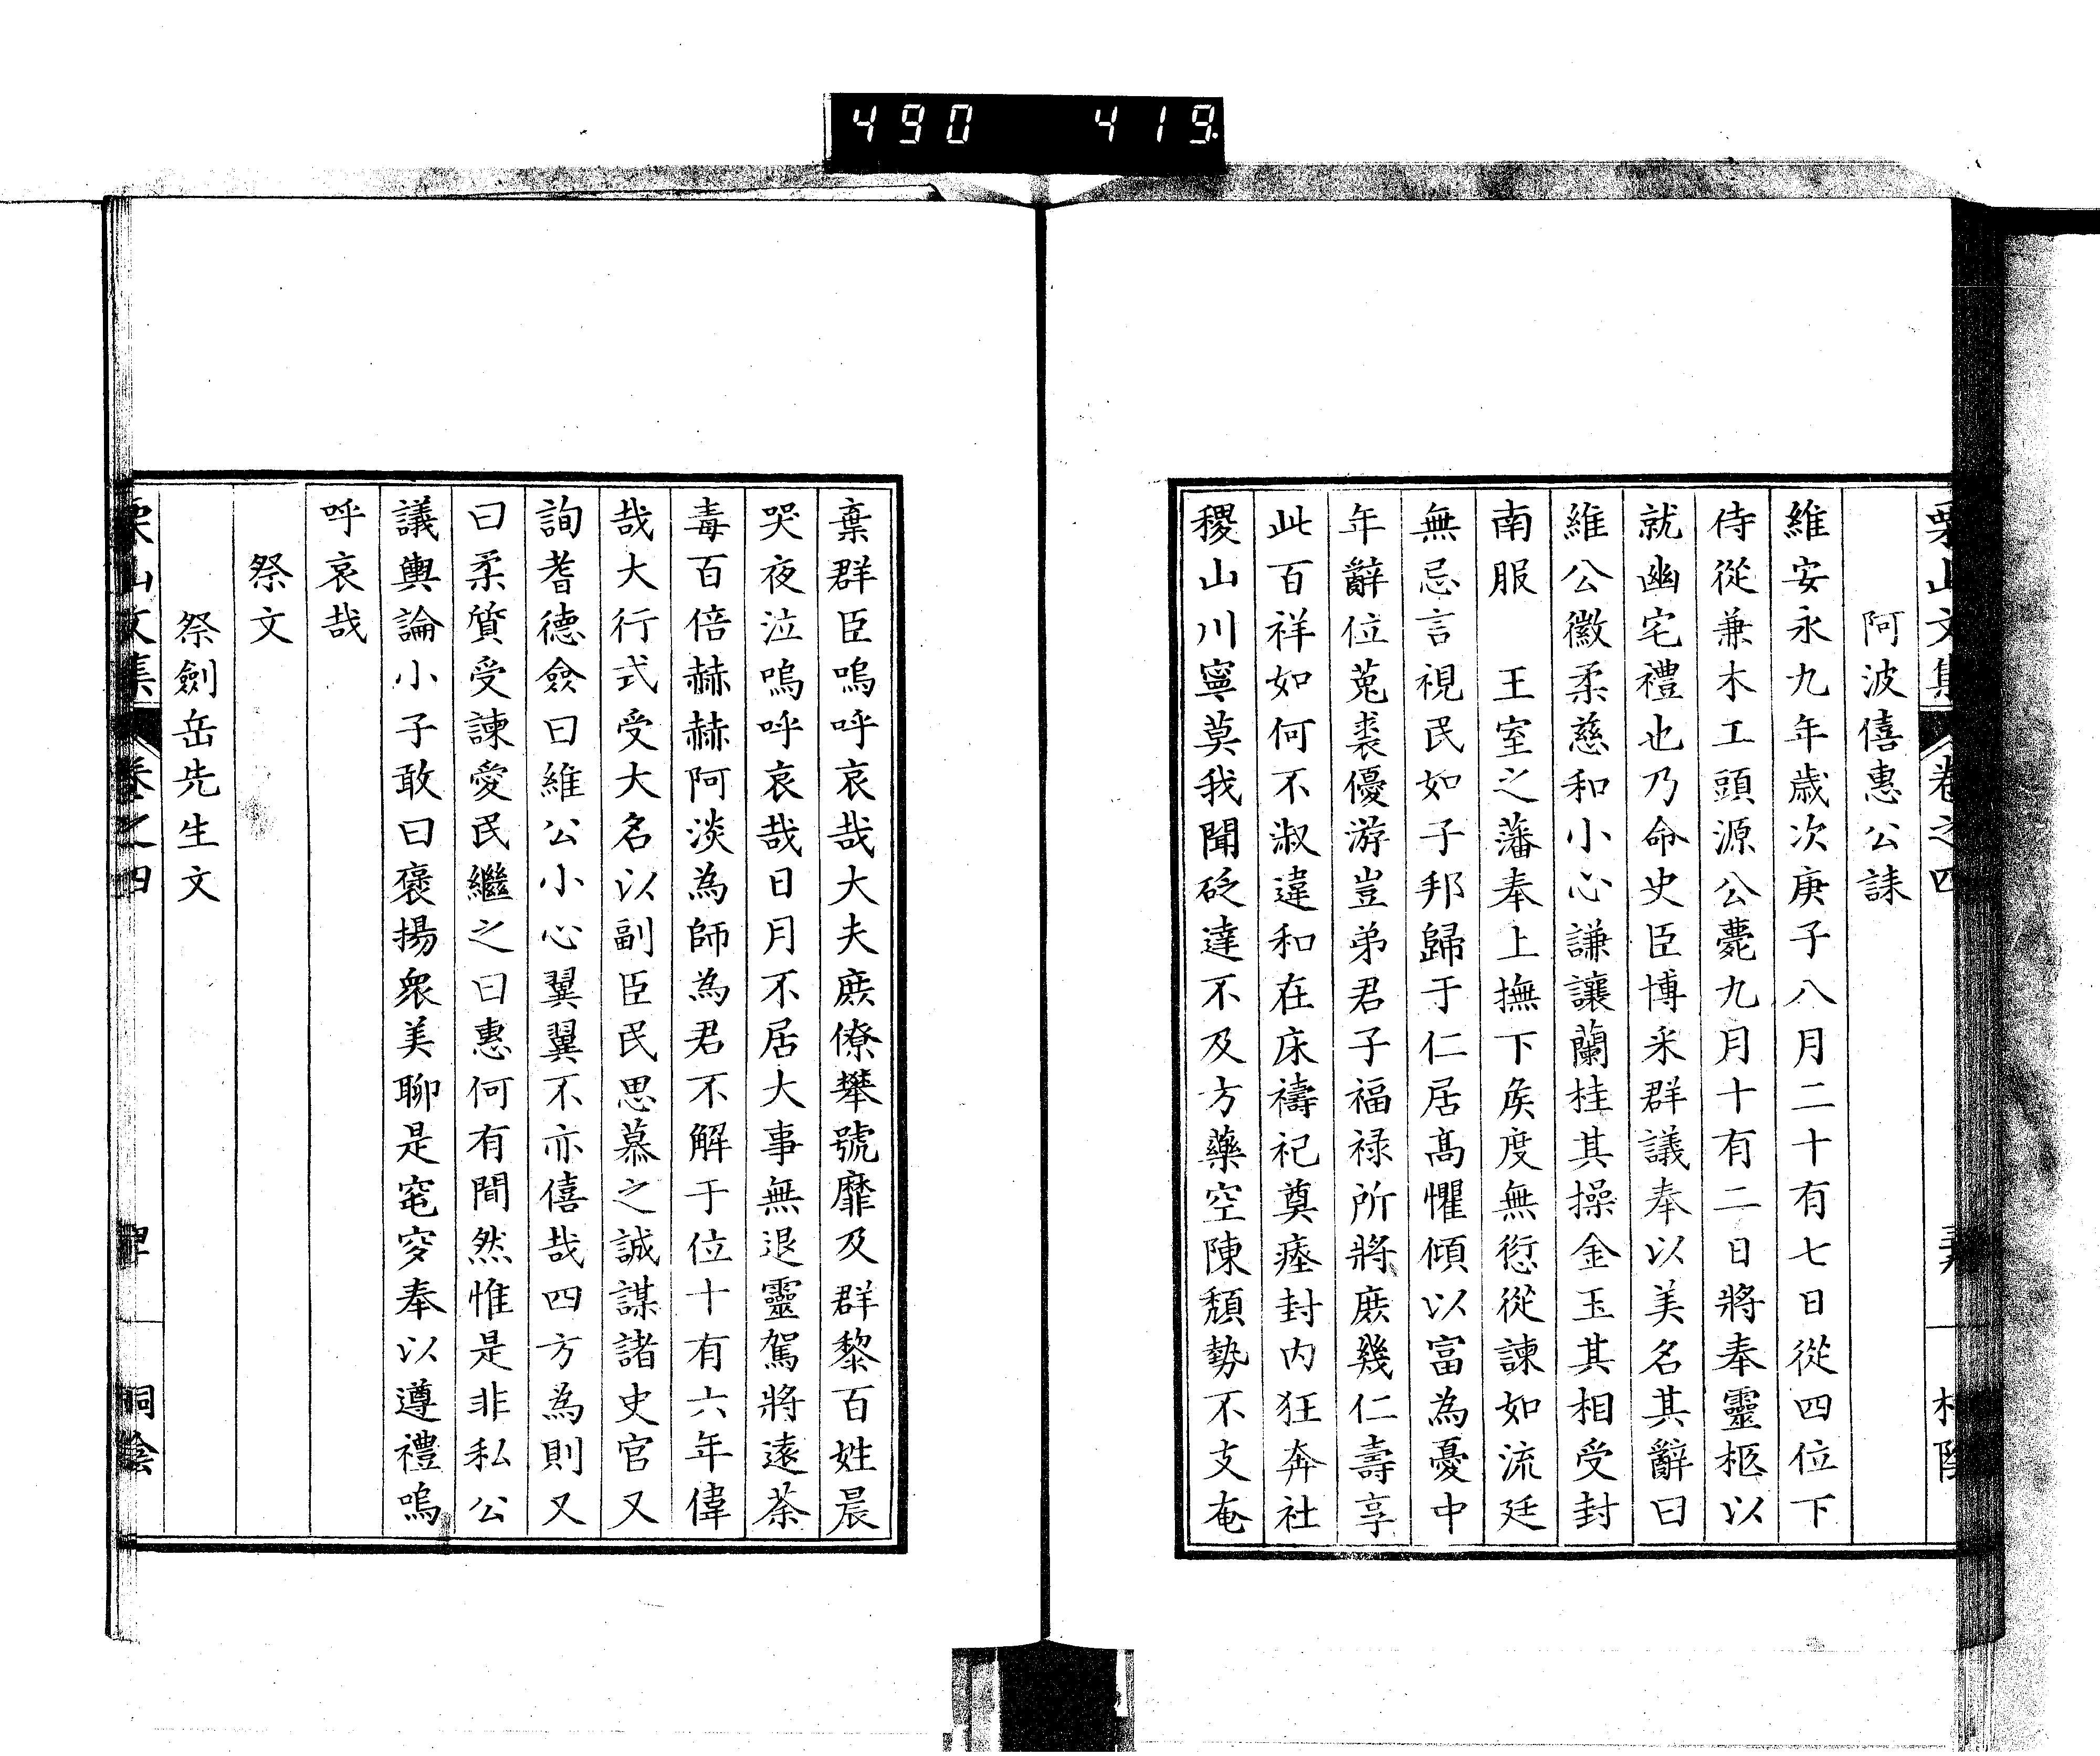 490 419
阿波僖惠公誄
維安永九年歲次庚子八月二十有七日從四位下
侍從兼木工頭源公薨九月十有二日將奉靈柩以
就幽宅禮也乃命史臣博采群議奉以美名其辭曰
維公徽柔慈和小心謙讓蘭桂其操金玉其相受封
南服　王室之藩奉上撫下矦度無愆從諫如流廷
無忌言視民如子邦歸于仁居高懼傾以富為憂中
年辭位菟裘優游豈弟君子福祿所將庶幾仁壽享
此百祥如何不淑違和在床禱祀奠瘞封內狂奔社
稷山川寧莫我聞砭達不及方藥空陳頹勢不支奄
棄群臣嗚呼哀哉大夫庶僚攀號靡及群黎百姓晨
哭夜泣嗚呼哀哉日月不居大事無退靈駕將遠荼
毒百倍赫赫阿淡為師為君不解于位十有六年偉
哉大行式受大名以副臣民思慕之誠謀諸史官又
詢耆德僉曰維公小心翼翼不亦僖哉四方為則又
曰柔質受諫愛民繼之曰惠何有間然惟是非私公
議輿論小子敢曰褒揚衆美聊是窀穸奉以遵禮嗚
呼哀哉
祭文
祭劍岳先生文
栗山文集 卷之四